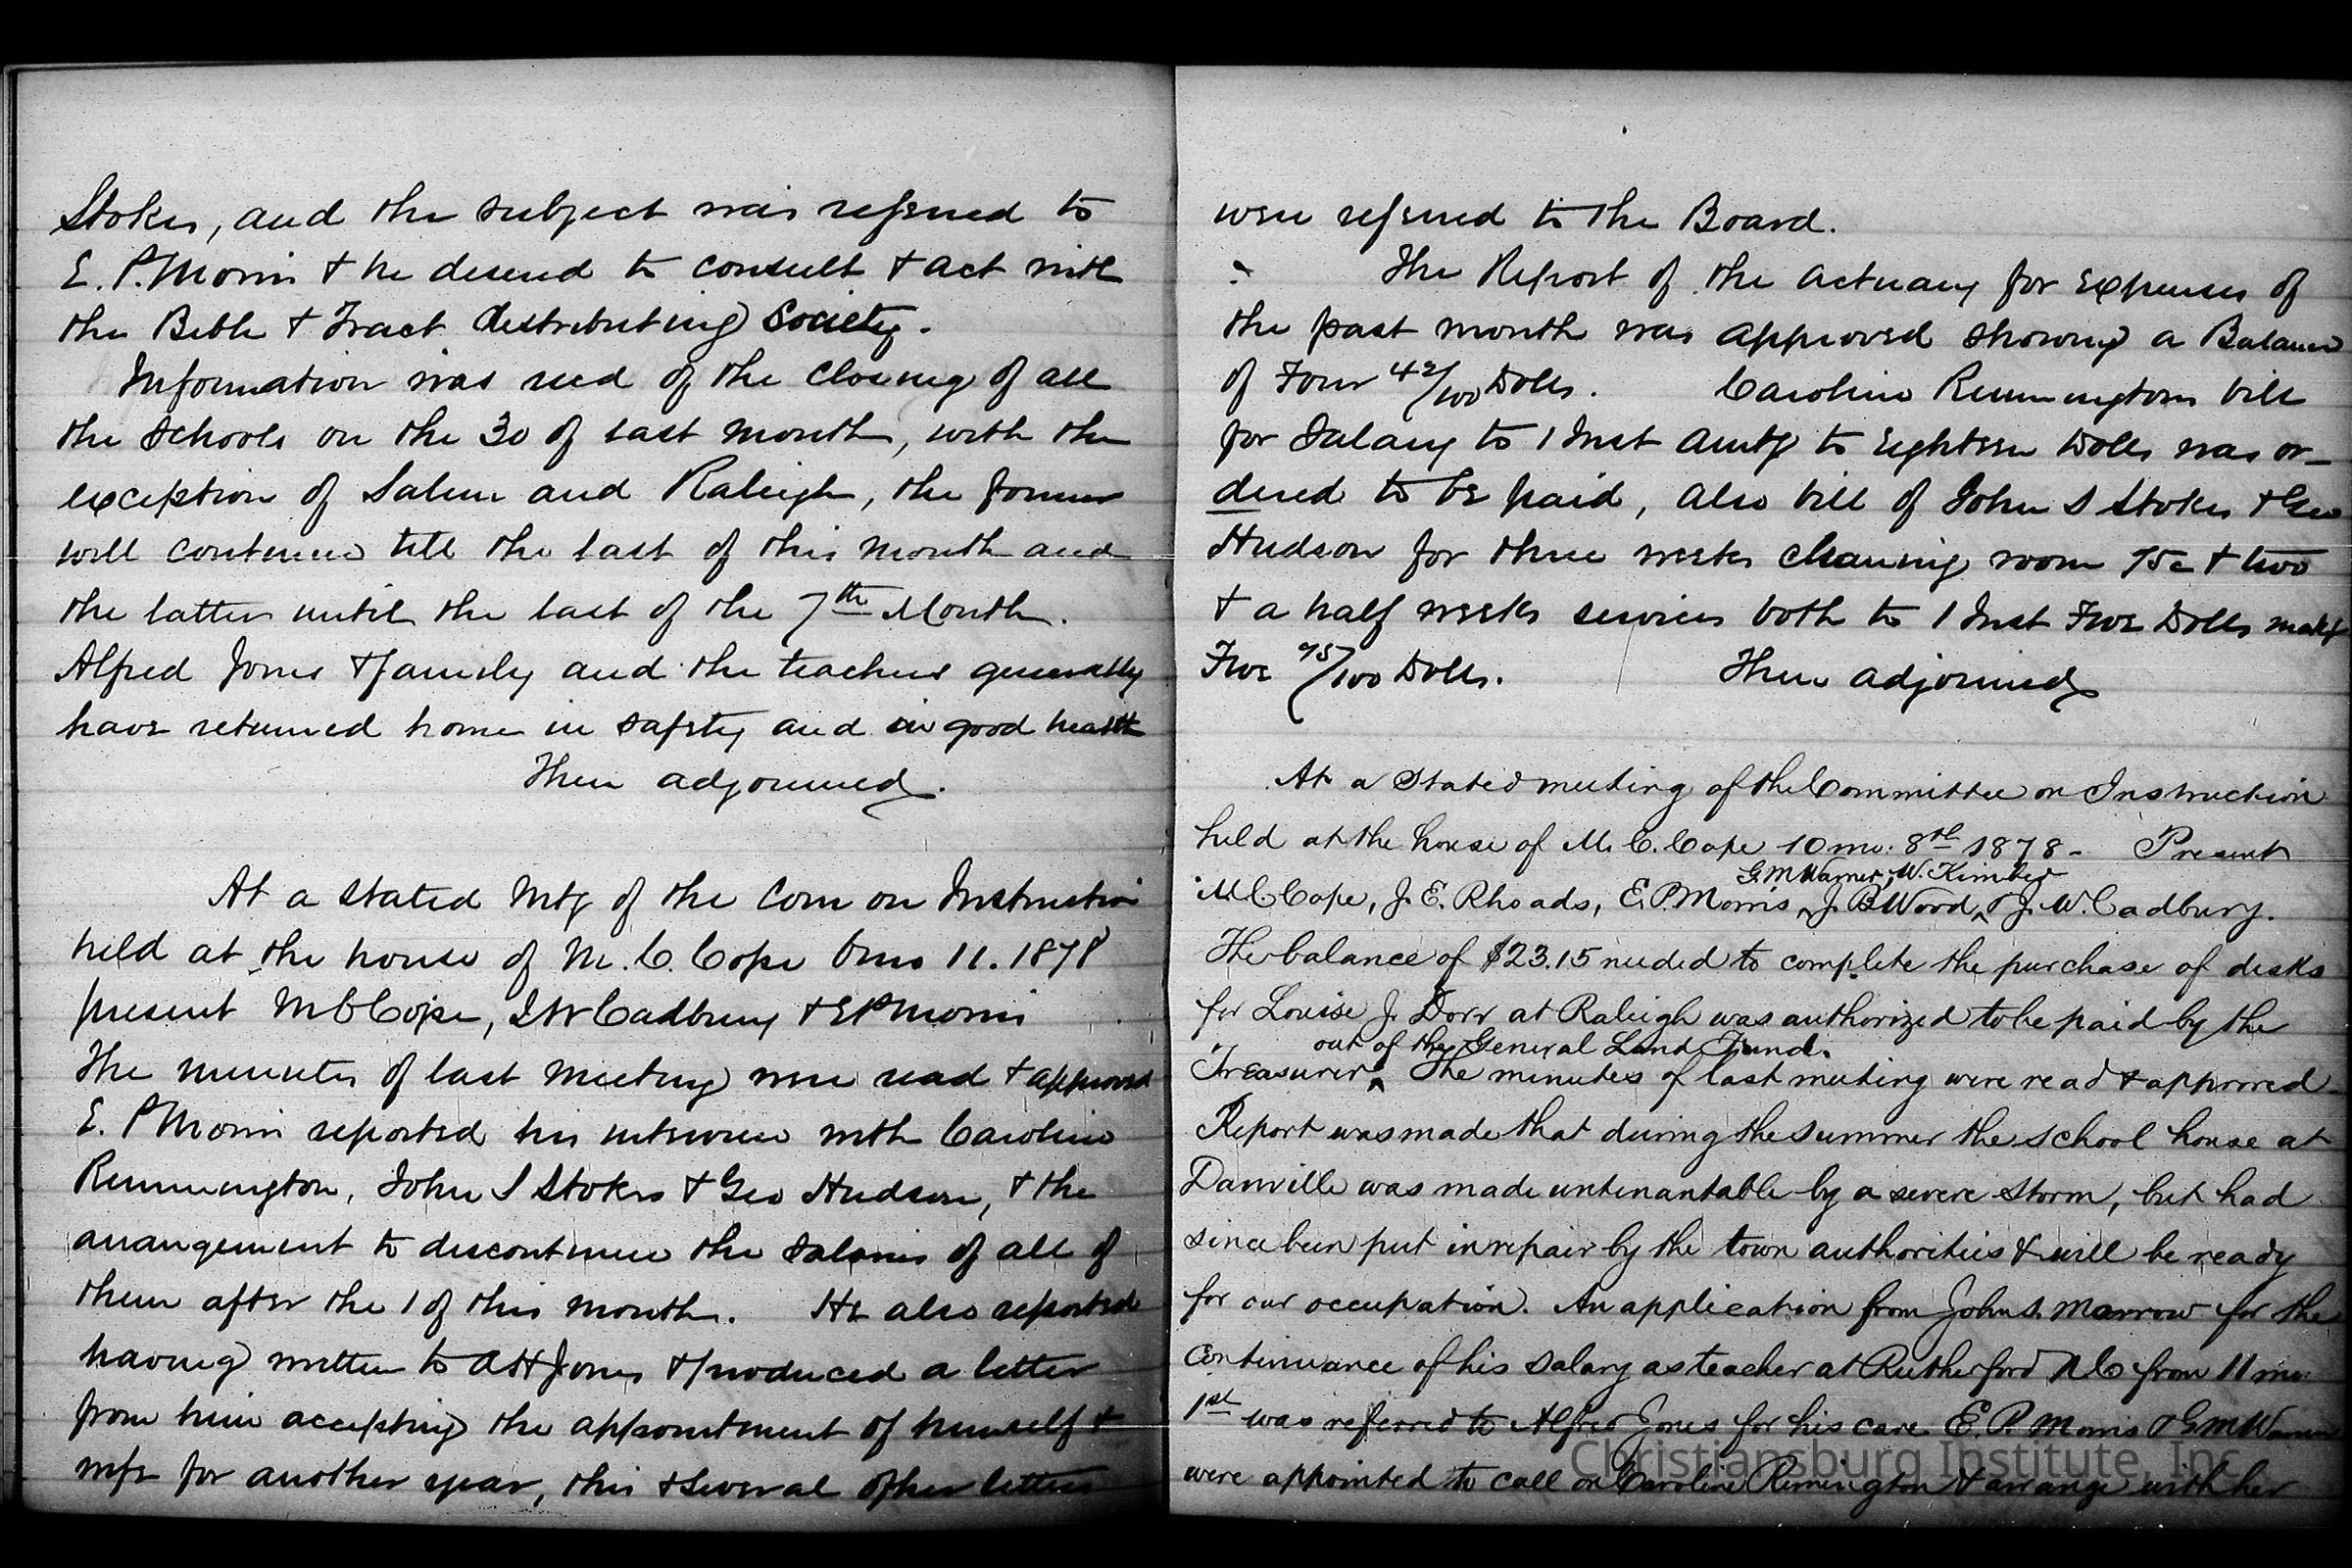 Stokes, and the subject was referred to
E. P. Morris & he desired to consult & act with
the Bible & Tract distributing Society.
Information was recd of the closing of all
the schools on the 30 of last month, with the
exception of Salem and Raleigh, the former
will continue till the last of this month and
the latter until the last of the 7th Month.
Alfred Jones & family and the teachers generally
have returned home in safety and in good health
Then adjourned.
At a stated Mtg of the Com on Instruction
held at the house of M. C. Cope 6mo 11. 1878
present M C Cope, J W Cadbury & E P Morris
The minutes of last meeting were read & approved
E. P Morris reported his interview with Caroline
Remmington, John S Stokes & Geo Hudson, & the
arrangement to discontinue the salaries of all of
them after the 1 of this month. He also reported
having written to A H Jones & produced a letter
from him accepting the appointment of himself &
wife for another year, this & several other letters
were referred to the Board.
The Report of the actuary for expenses of
the past month was approved showing a Balance
of Four 42/100 Dolls. Caroline Remmingtons bill
for Salary to 1 Inst amtg to eighteen Dolls was or-
dered to be paid, also bill of John S Stokes & Geo
Hudson for three weeks cleaning room 75c & two
& a half weeks services both to 1 Inst Five Dolls makg
Five 75/100 Dolls. Then adjourned
At a Stated meeting of the Committee on Instruction
held at the house of M. C. Cope 10 mo: 8th 1878 - Present
G. M Warner, W. Kimber
M C Cope, J. E. Rhoads, E. P. Morris, J. B Wood, & J. W. Cadbury.
The balance of $23.15 needed to complete the purchase of desks
for Louise J. Dorr at Raleigh was authorized to be paid by the
out of the General Land Fund.
Treasurer. The minutes of last meeting were read & approved
Report was made that during the summer the school house at
Danville was made untenantable by a severe storm, but had
since been put in repair by the town authorities & will be ready
for our occupation. An application from John S. Marrow for the
continuance of his salary as teacher at Rutherford N C from 11 mo:
1st was referred to Alfred Jones for his care. E. P. Morris & G M Warner
were appointed to call on Caroline Remington & arrange with her
Christiansburg Institute, Inc